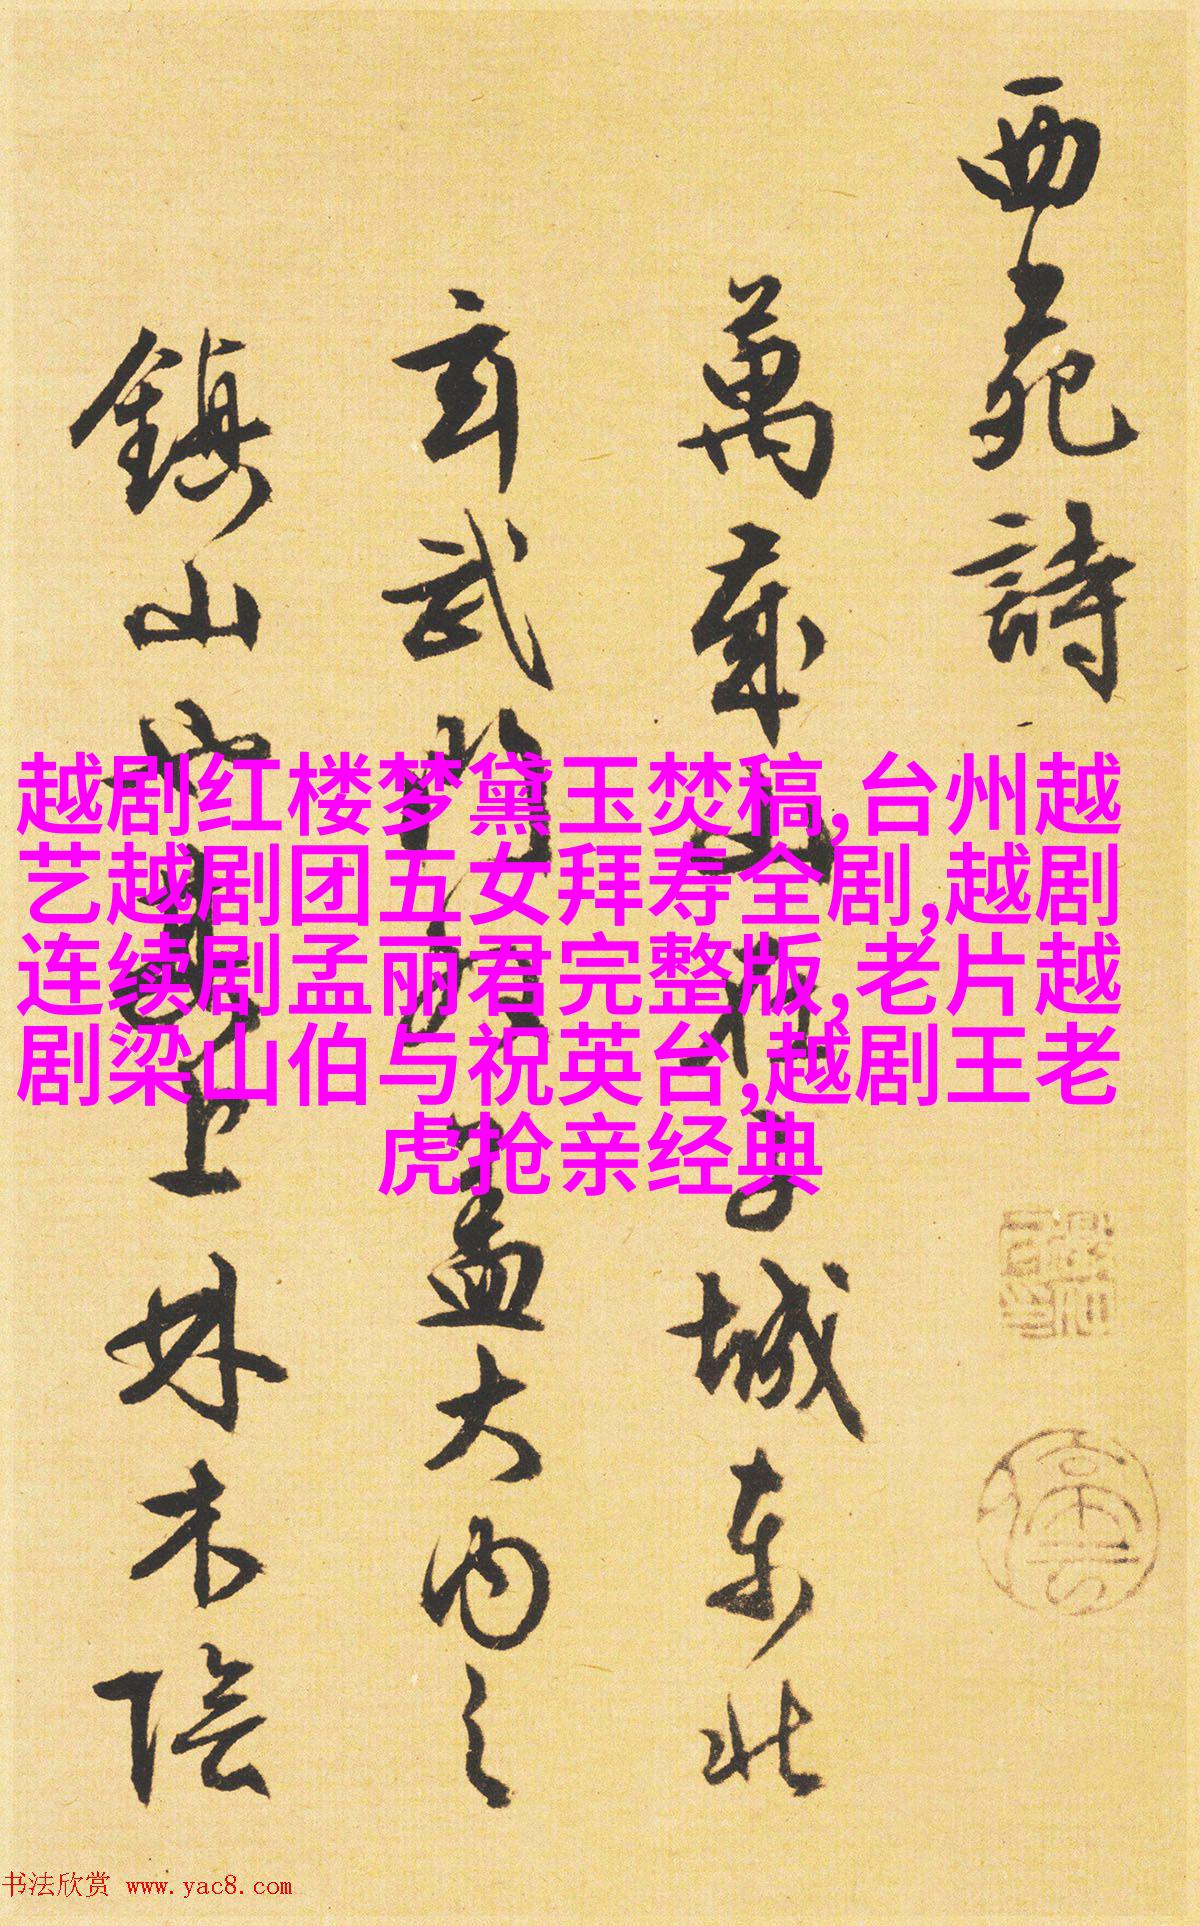 西苑詩
萬歲山在子城東北
玄武門外更盖大內之
鎮山也其上林木陰
越剧红楼梦黛玉焚稿,台州越
艺越剧团五女拜寿全剧,越剧
连续剧孟丽君完整版,老片越
剧梁山伯与祝英台,越剧王老
虎抢亲经典
书法欣赏 www.yac8.com